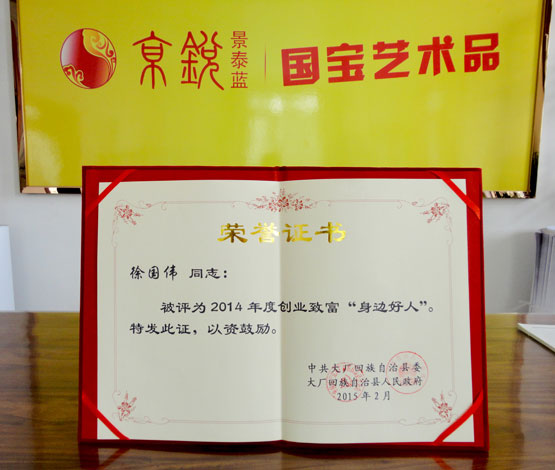 京銳 景泰蓝 国宝艺术品
荣誉证书
徐国伟 同志：
被评为2014年度创业致富“身边好人”。
特发此证，以资鼓励。
中共大厂回族自治县委
大厂回族自治县人民政府
2015年2月